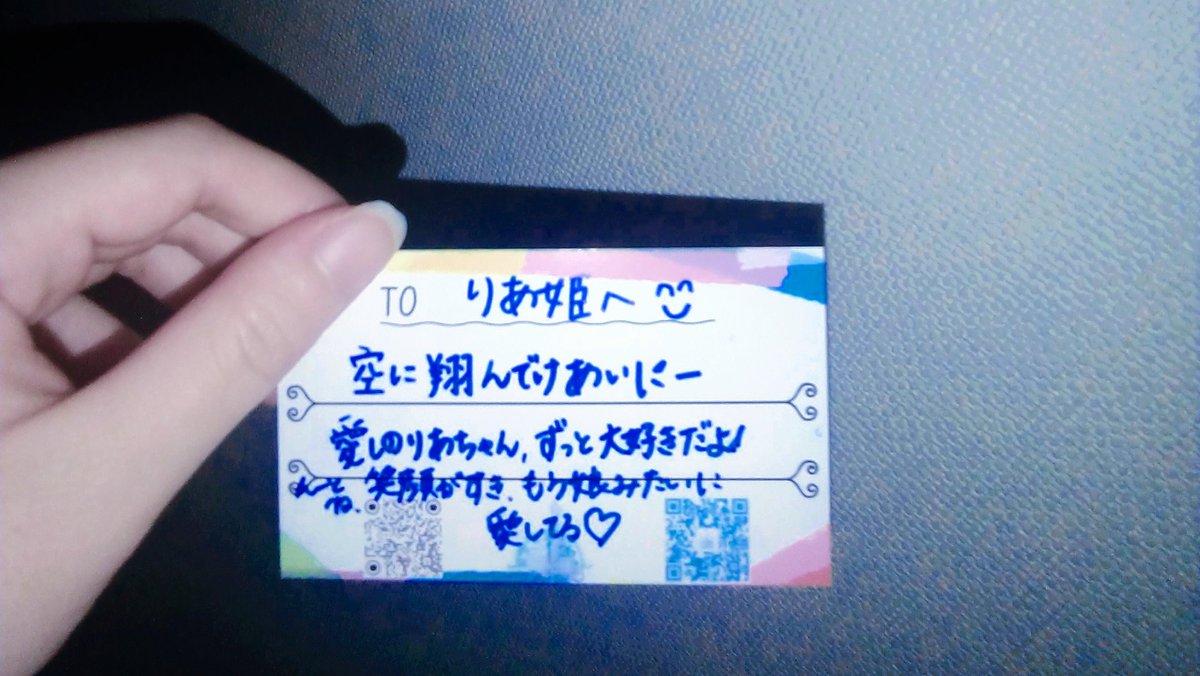 TO りあ姫へ
空に翔んでけあいにー
愛しのりあちゃん,ずっと大好きだよ!
笑顔がすき、もう娘みたいに
愛してる♡